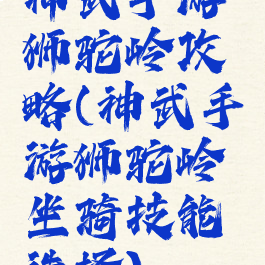 神武手游
狮驼岭攻
略(神武手
游狮驼岭
坐骑技能
选择)